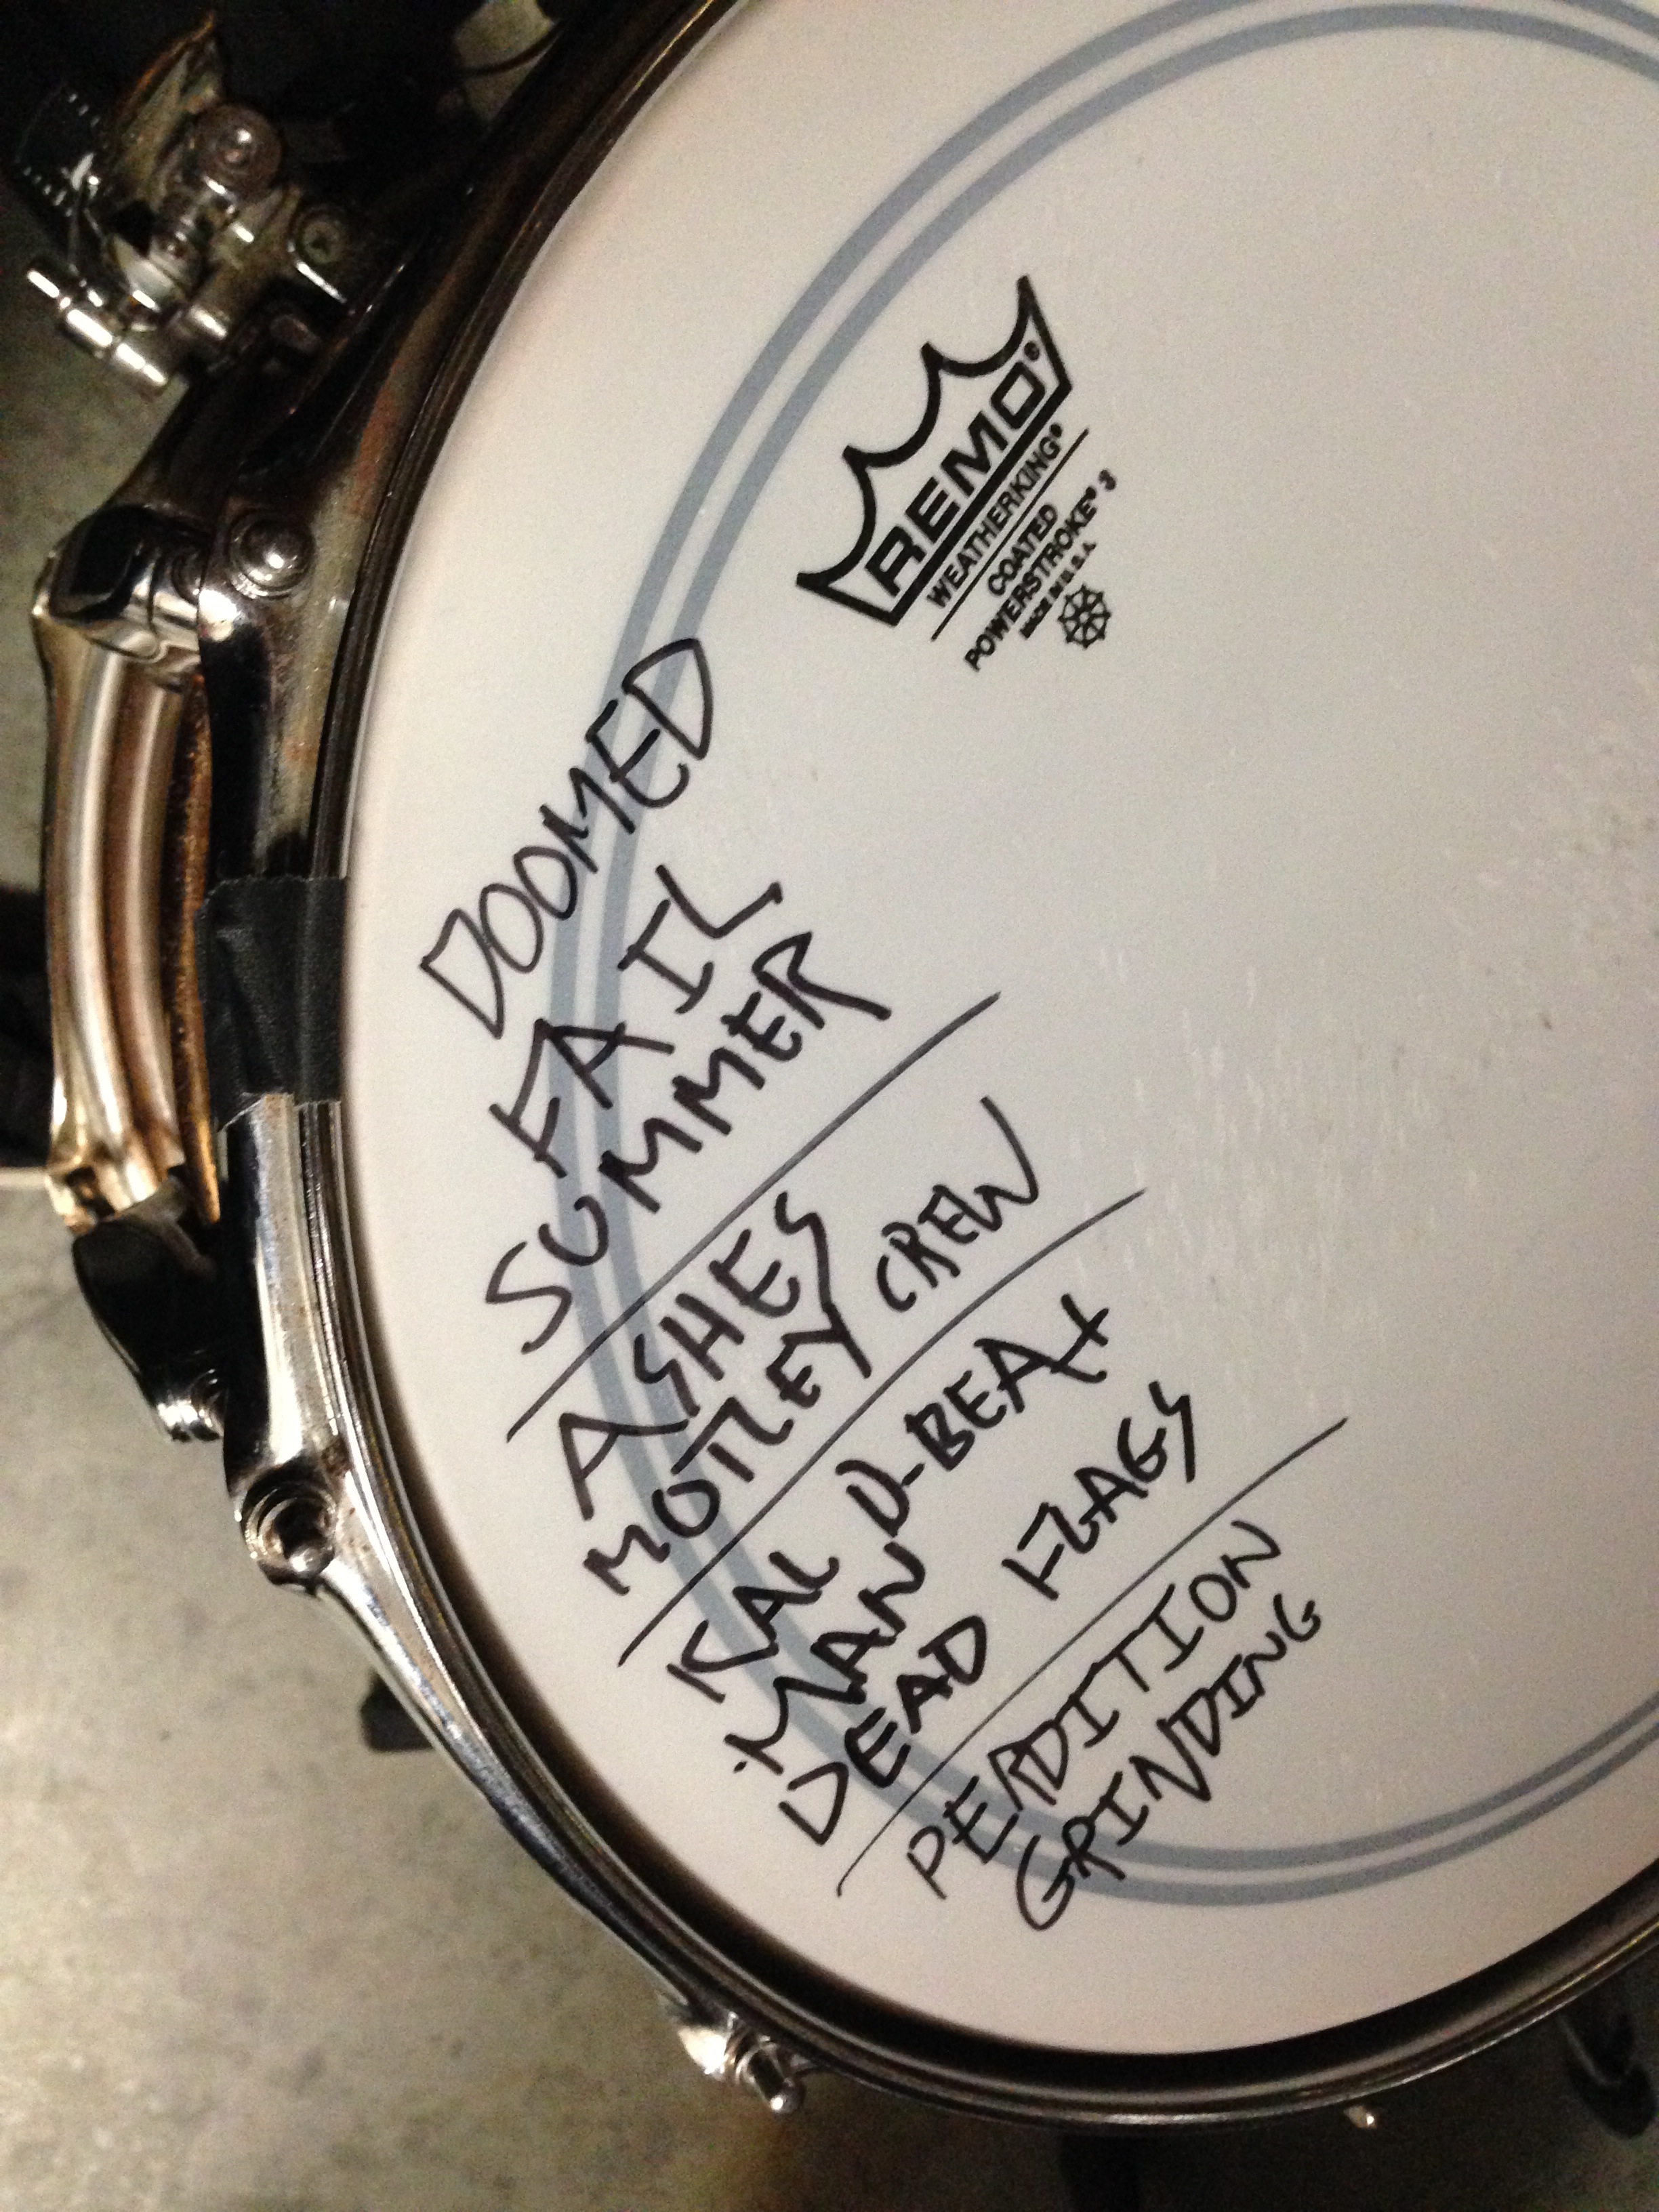 REMO®
WEATHERKING®
COATED
POWERSTROKE® 3
MADE IN U.S.A.
DOOMED
FAIL
SUMMER
ASHES
MOTLEY CREW
KAL D-BEAT
MAN
DEAD FLAGS
PERDITION
GRINDING